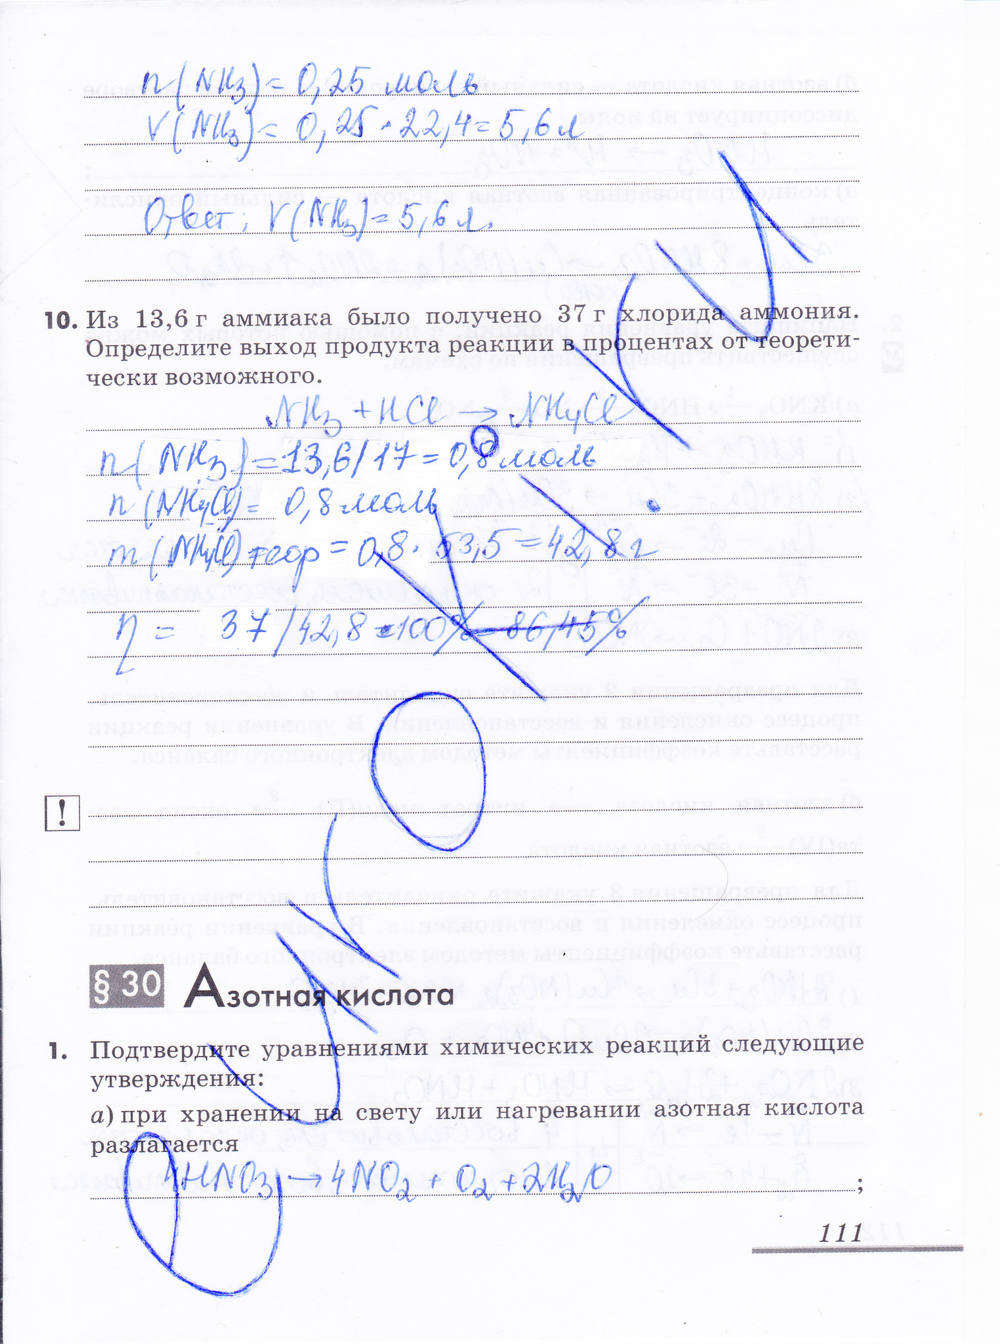 n(NH3) = 0,25 моль
V(NH3) = 0,25 · 22,4 = 5,6 л
Ответ: V(NH3) = 5,6 л.
10. Из 13,6 г аммиака было получено 37 г хлорида аммония.
Определите выход продукта реакции в процентах от теорети-
чески возможного.
NH3 + HCl → NH4Cl
n(NH3) = 13,6/17 = 0,8 моль
n(NH4Cl) = 0,8 моль
m(NH4Cl) теор = 0,8 · 53,5 = 42,8 г
η = 37/42,8 · 100% = 86,45%
!
§ 30 Азотная кислота
1. Подтвердите уравнениями химических реакций следующие
утверждения:
а) при хранении на свету или нагревании азотная кислота
разлагается
4HNO3 → 4NO2 + O2 + 2H2O ;
111